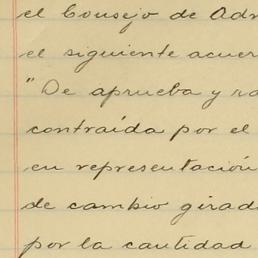 el Consejo de Adm
el siguiente acuer
"De aprueba y ra
contraída por el
en representación
de cambio girad
por la cantidad